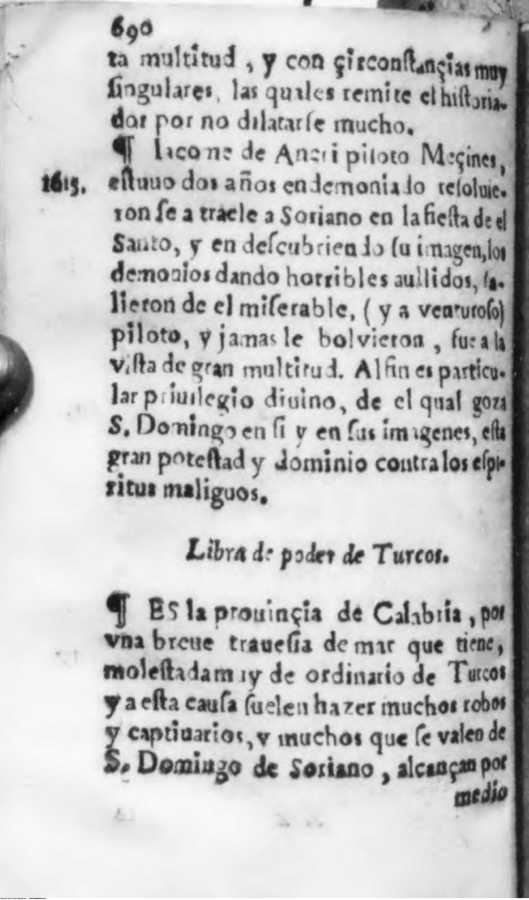 690
ta multitud, y con çirconſtançias muy
ſingulares, las quales remite el hiſtoria-
dor por no dilatarſe mucho.
¶ Iacome de Aneri piloto Meçines,
1615. eſtuuo dos años endemoniado reſoluie-
ron ſe a traele a Soriano en la fieſta de el
Santo, y en deſcubriendo ſu imagen, los
demonios dando horribles aullidos, ſa-
lieron de el miſerable, (y a venturoſo)
piloto, y jamas le bolvieron, fue a la
viſta de gran multitud. Al fin es particu-
lar priuilegio diuino, de el qual goza
S. Domingo en ſi y en ſus imagenes, eſta
gran poteſtad y dominio contra los eſpi-
ritus maliguos.
Libra de poder de Turcos.
¶ ES la prouinçia de Calabria, por
vna breue traueſia de mar que tiene,
moleſtada muy de ordinario de Turcos
y a eſta cauſa ſuelen hazer muchos robos
y captiuarios, y muchos que ſe valen de
S. Domingo de Soriano, alcançan por
medio